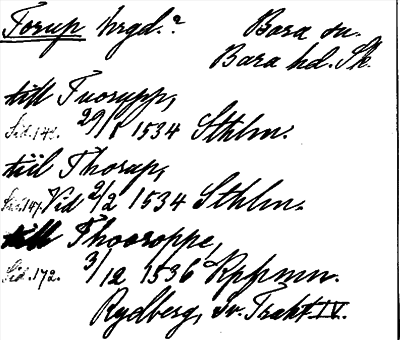 Torup hrgd.? Bara sn.
Bara hd. Sk.
till Tuorupp,
Sid. 142. 29/1 1534 Sthlm.
till Thorup,
Sid. 147. Vid 2/2 1534 Sthlm.
till Thooroppe,
Sid. 172. 3/12 1536 Kppmn.
Rydberg, Sv. Trakt. IV.